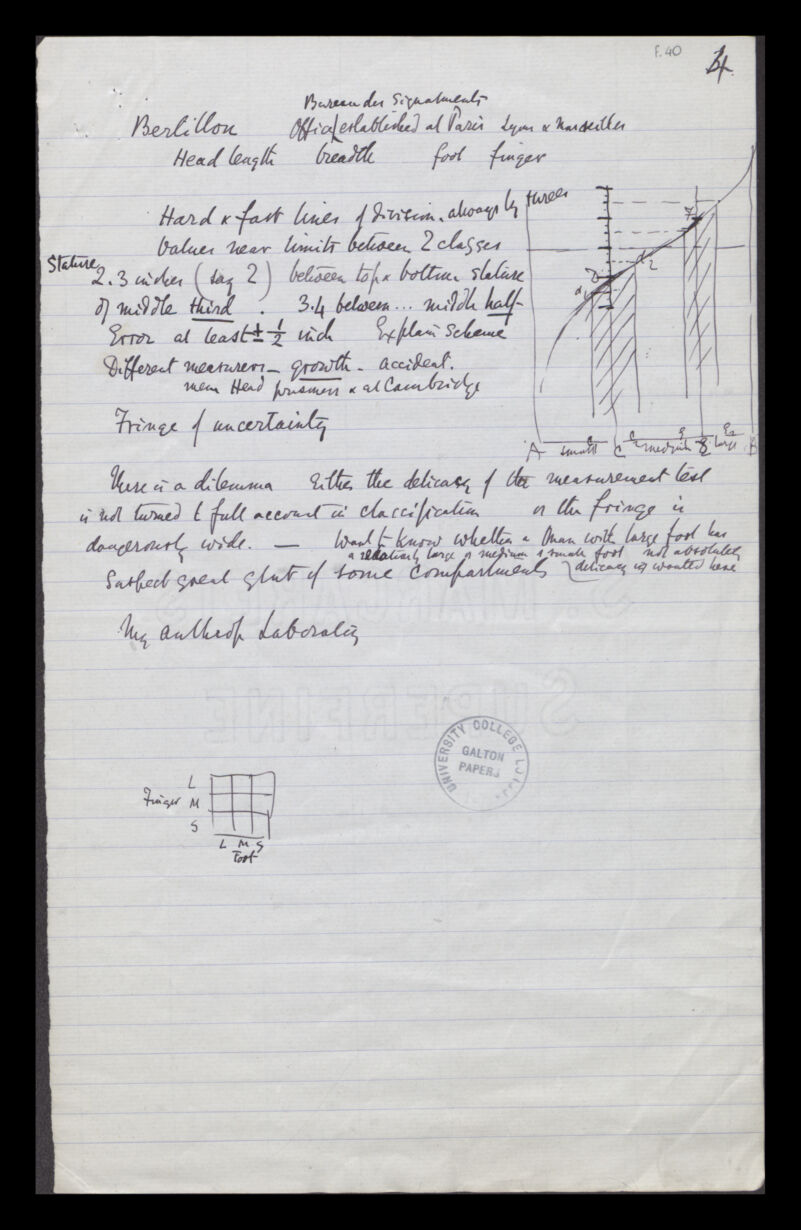 f.40
4
Bureau des Signalments
Bertillon Office established at Paris Lyons & Marseilles
Head length breadth foot finger
Hard & fast lines of division. always by threes
Values near limits between 2 classes
Stature
2.3 inches (say 2) between top & bottom stature
of middle third. 3.4 between ... middle half
Error at least ± 1/2 inch Explain Scheme
Different measurers – growth – accident.
mem Head prismers & at Cambridge
Fringe of uncertainty
A small C medium E large B
There is a dilemma Either the delicacy of the measurement test
is not turned to full account in classification or the fringe is
dangerously wide. — Want to know whether a man with large foot has
a relatively large or medium & small foot not absolutely
Suspect great glut of some compartments } delicacy is wanted here
My Anthrop Laboratory
SUPERFINE
UNIVERSITY COLLEGE
GALTON
PAPERS
L
Finger M
S
L M S
Foot